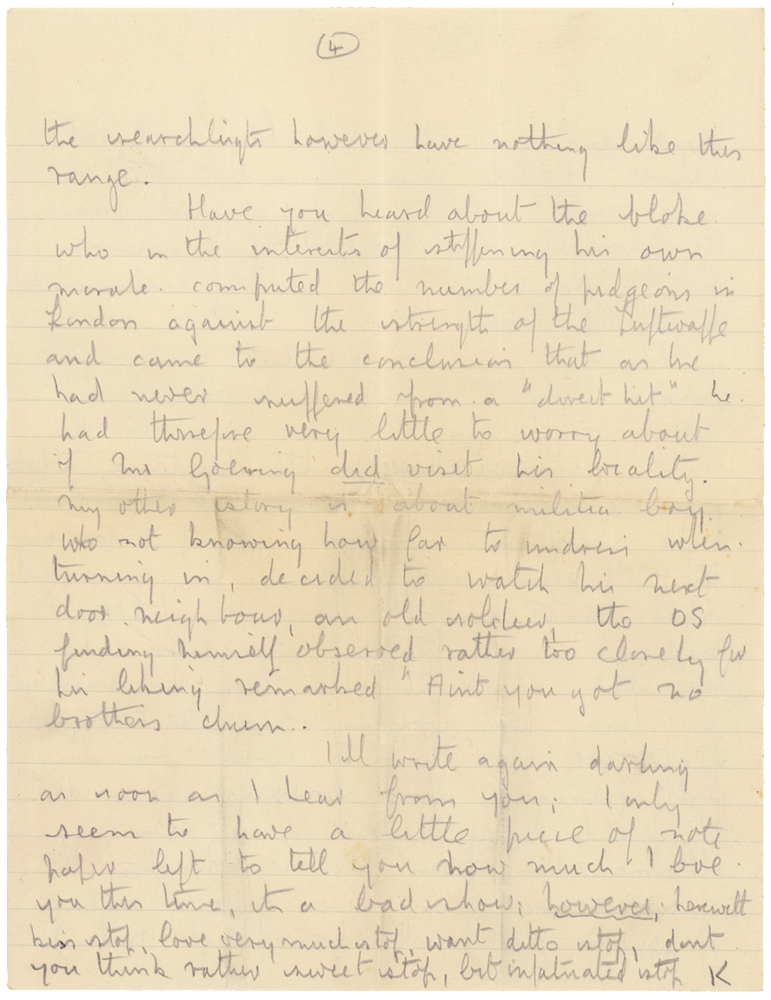 4
the searchlights however have nothing like this
range.
Have you heard about the bloke
who in the interests of stiffening his own
morale. computed the number of pidgeons in
London against the strength of the Luftwaffe
and came to the conclusion that as he
had never suffered from a "direct hit" he
had therefore very little to worry about
if Goering did visit his locality.
My other story is about militia boy
who not knowing how far to undress when
turning in, decided to watch his next
door neighbour, an old soldier, the OS
finding himself observed rather too closely for
his liking remarked "Aint you got no
brothers chum..
I'll write again darling
as soon as I hear from you; I only
seem to have a little piece of note
paper left to tell you how much I love
you this time, its a bad show; however; herewith
kiss stop, love very much stop, want ditto stop, dont
you think rather sweet stop, bit infatuated stop K